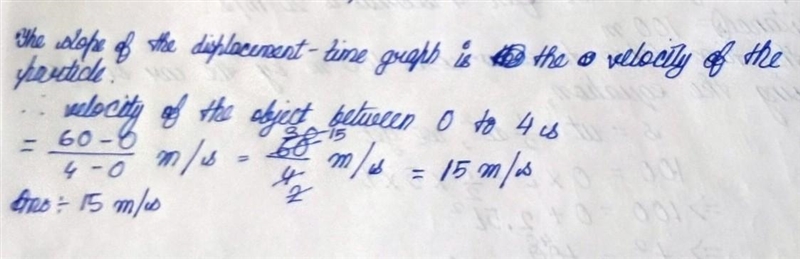 The slope of the displacement-time graph is the velocity of the
particle.
∴ velocity of the object between 0 to 4 s
= 60-0/4-0 m/s = 60/4 m/s = 15 m/s
30 15
2
Ans÷ 15 m/s